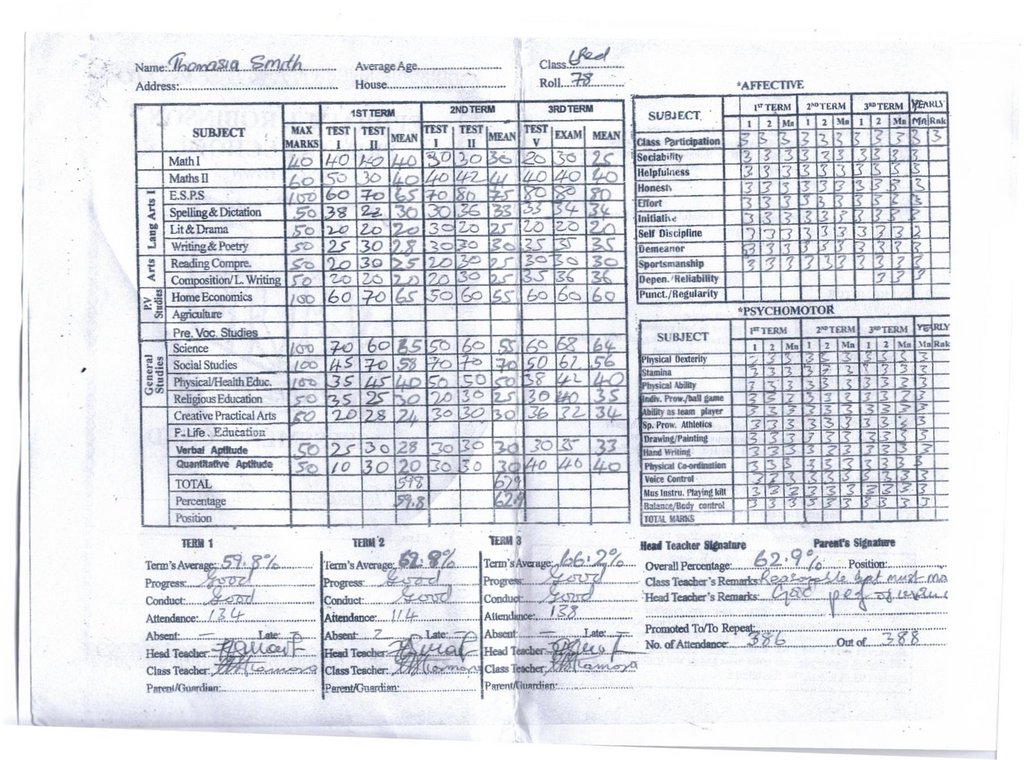 Name: Thomasia Smith Average Age Class Red
Address: House Roll 78
SUBJECT MAX MARKS 1ST TERM TEST I TEST II MEAN 2ND TERM TEST I TEST II MEAN 3RD TERM TEST V EXAM MEAN
Lang Arts I
Arts
P.V Studies
General Studies
Math I 40 40 40 40 30 30 30 20 30 25
Maths II 60 50 30 40 40 42 41 40 40 40
E.S.P.S 100 60 70 65 70 80 75 80 80 80
Spelling & Dictation 50 38 22 30 30 36 33 33 34 34
Lit & Drama 50 20 20 20 30 20 25 20 20 20
Writing & Poetry 50 25 30 28 30 30 30 35 35 35
Reading Compre. 50 20 30 25 20 30 25 30 30 30
Composition/L. Writing 50 20 20 20 20 30 25 35 36 36
Home Economics 100 60 70 65 50 60 55 60 60 60
Agriculture
Pre. Voc. Studies
Science 100 70 60 65 50 60 55 60 68 64
Social Studies 100 45 70 58 70 70 70 50 62 56
Physical/Health Educ. 100 35 45 40 50 50 50 38 42 40
Religious Education 50 35 25 30 20 30 25 30 40 35
Creative Practical Arts 50 20 28 24 30 30 30 36 32 34
F-Life. Education
Verbal Aptitude 50 25 30 28 30 30 30 30 35 33
Quantitative Aptitude 50 10 30 20 30 30 30 40 40 40
TOTAL 598 629
Percentage 59.8 62.9
Position
*AFFECTIVE
SUBJECT 1ST TERM 2ND TERM 3RD TERM YEARLY
1 2 Mn 1 2 Mn 1 2 Mn Mn Rnk
Class Participation 3 3 3 3 3 3 3 3 3 3 3
Sociability 3 3 3 3 3 3 3 3 3
Helpfulness 3 3 3 3 3 3 3 3 3
Honest 3 3 3 3 3 3 3 3 3
Effort 3 3 3 3 3 3 3 3 3
Initiative 3 3 3 3 3 3 3 3 3
Self Discipline 3 3 3 3 3 3 3 3 3
Demeanor 3 3 3 3 3 3 3 3 3
Sportsmanship 3 3 3 3 3 3 3 3 3
Depen. /Reliability 3 3
Punct./Regularity
*PSYCHOMOTOR
SUBJECT 1ST TERM 2ND TERM 3RD TERM YEARLY
1 2 Mn 1 2 Mn 1 2 Mn Mn Rnk
Physical Dexterity 3 3 3 3 3 3 3 3 3
Stamina 3 3 3 3 3 3 3 3 3
Physical Ability 3 3 3 3 3 3 3 3 3
Indiv. Prow./ball game 3 3 3 3 3 3 3 3 3
Ability as team player 3 3 3 3 3 3 3 3 3
Sp. Prow. Athletics 3 3 3 3 3 3 3 3 3
Drawing/Painting 3 3 3 3 3 3 3 3 3
Hand Writing 3 3 3 3 3 3 3 3 3
Physical Co-ordination 3 3 3 3 3 3 3 3 3
Voice Control 3 3 3 3 3 3 3 3 3
Mus Instru. Playing kill 3 3 3 3 3 3 3 3 3
Balance/Body control 3 3 3 3 3 3 3 3 3
TOTAL MARKS
TERM 1
Term's Average: 59.8%
Progress: Good
Conduct: Good
Attendance: 134
Absent: — Late:
Head Teacher:
Class Teacher:
Parent/Guardian:
TERM 2
Term's Average: 62.9%
Progress: Good
Conduct: Good
Attendance: 114
Absent: 2 Late:
Head Teacher:
Class Teacher:
Parent/Guardian:
TERM 3
Term's Average: 66.2%
Progress: Good
Conduct: Good
Attendance: 138
Absent: — Late:
Head Teacher
Class Teacher,
Parent/Guardian:
Head Teacher Signature Parent's Signature
Overall Percentage: 62.9% Position:
Class Teacher's Remarks: Reasonable but must
Head Teacher's Remarks:
Promoted To/To Repeat:
No. of Attendance: 386 Out of 388